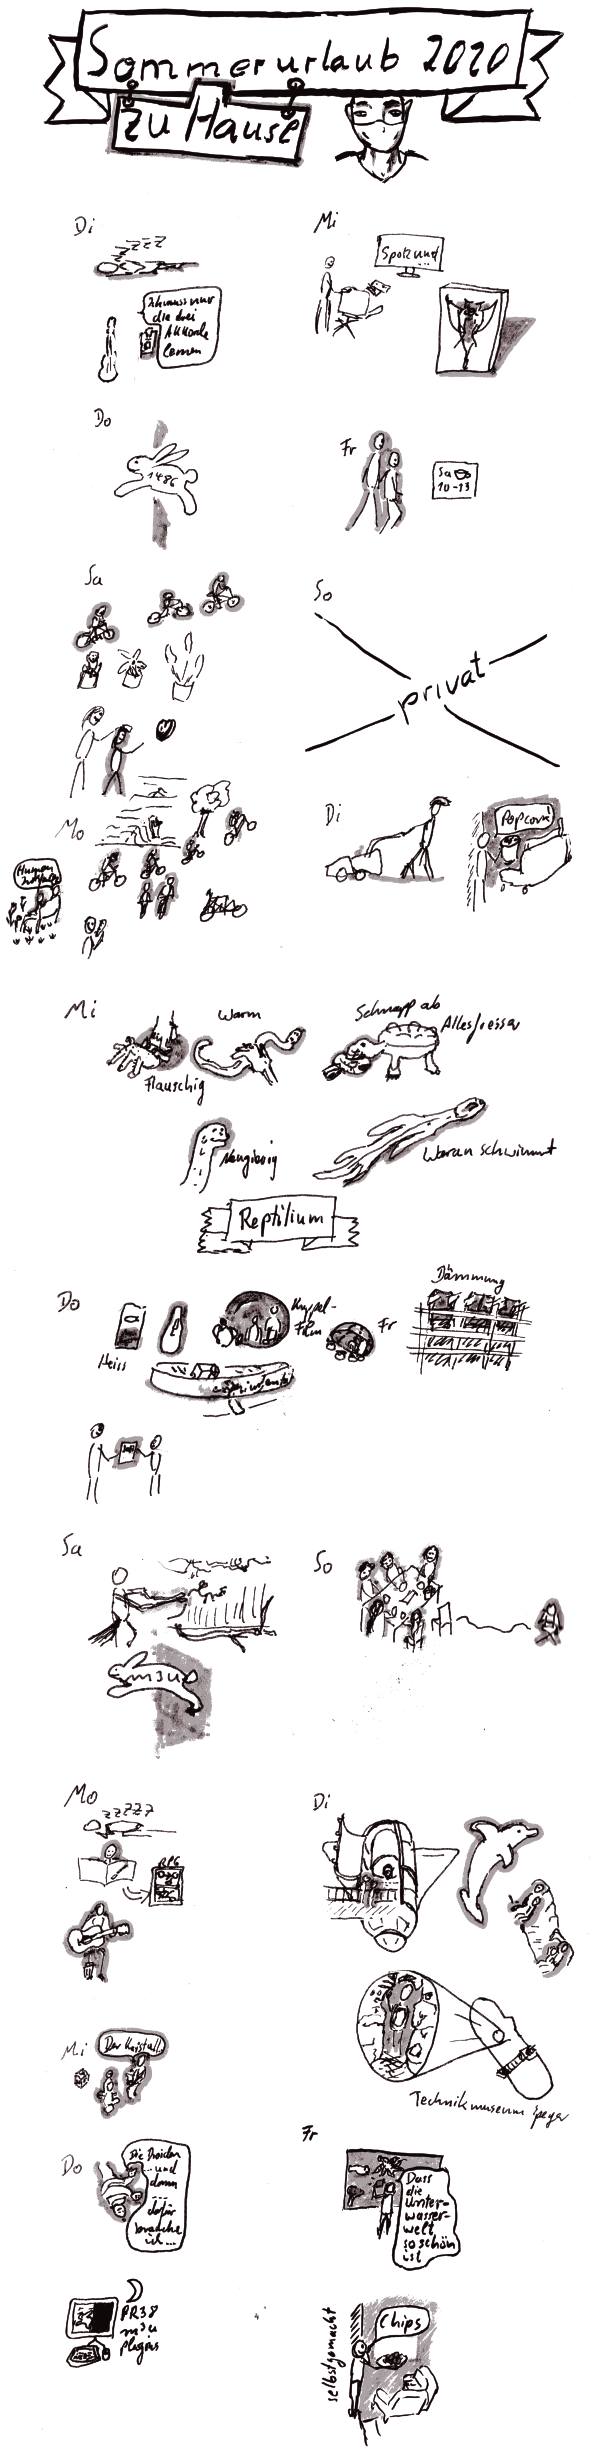 Sommerurlaub 2020
zu Hause
Di
Mi
zzzzz
Spotz und
Ich muss nur
die drei
Akkorde
lernen
Do
1486
Fr
Sa
10-13
Sa
So
privat
Mo
Di
Popcorn
Mi
Warm
Schnapp ab
Allesfresser
Flauschig
Neugierig
Waran schwimmt
Reptilium
Do
Heiss
Kuppel-
Film
Fr
Dämmung
Sa
So
m3u
Mo
zzzzz
RPG
Di
Technikmuseum Speyer
Mi
Der Kristall
Do
Fr
Die Druiden
... und
dann
... dafür
brauche
ich ...
Dass
die
Unter-
wasser-
welt
so schön
ist
PR38
m3u
plugins
selbstgemacht
Chips